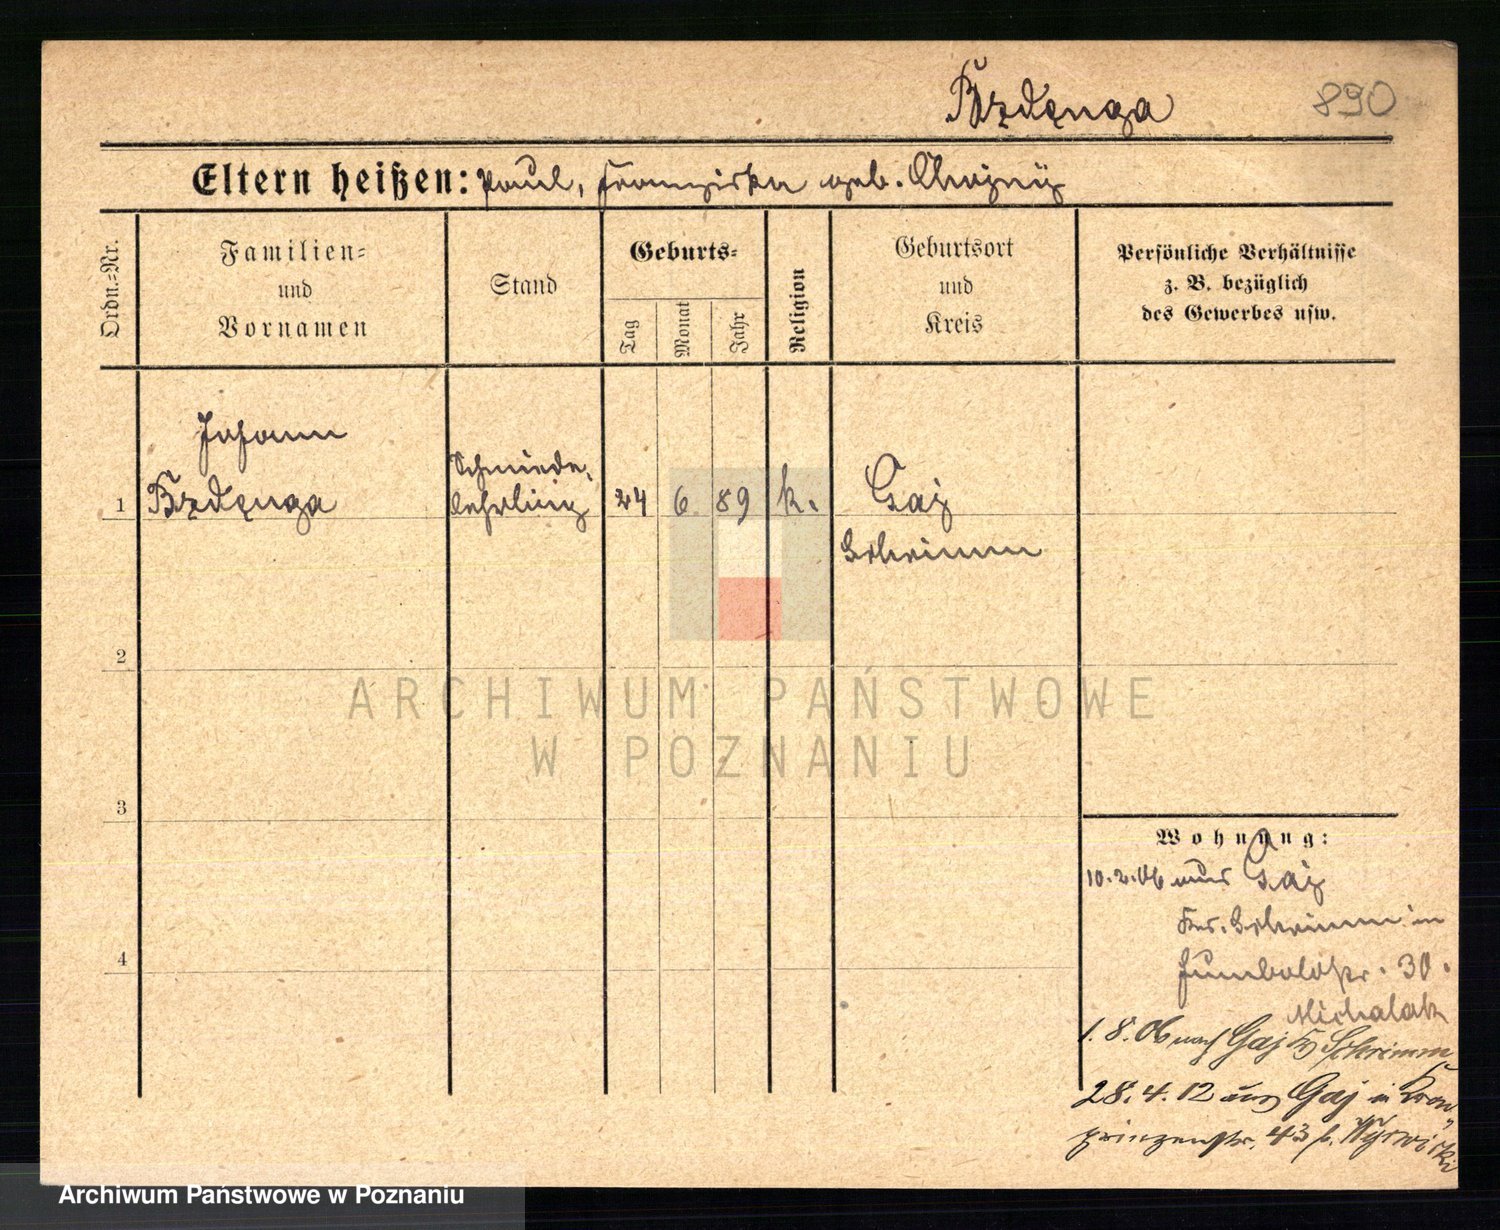 Brdęnga 890
Eltern heißen: Paul, Franziska geb. Chojnij
Ordn.-Nr.
Familien-
und
Vornamen
Stand
Geburts-
Tag
Monat
Jahr
Religion
Geburtsort
und
Kreis
Persönliche Verhältnisse
z. B. bezüglich
des Gewerbes usw.
Johann
1 Brdęnga
Schmiede-
lehrling
24 6 89 k.
Gaj
Schrimm
2
3
4
ARCHIWUM PAŃSTWOWE
W POZNANIU
Wohnung:
10.2.06 aus Gaj
Krs. Schrimm in
Humboldtstr. 30.
Michalak
1.8.06 nach Gaj Kr Schrimm
28.4.12 aus Gaj in Kron-
prinzenstr. 43 b. Wyrwicki
Archiwum Państwowe w Poznaniu